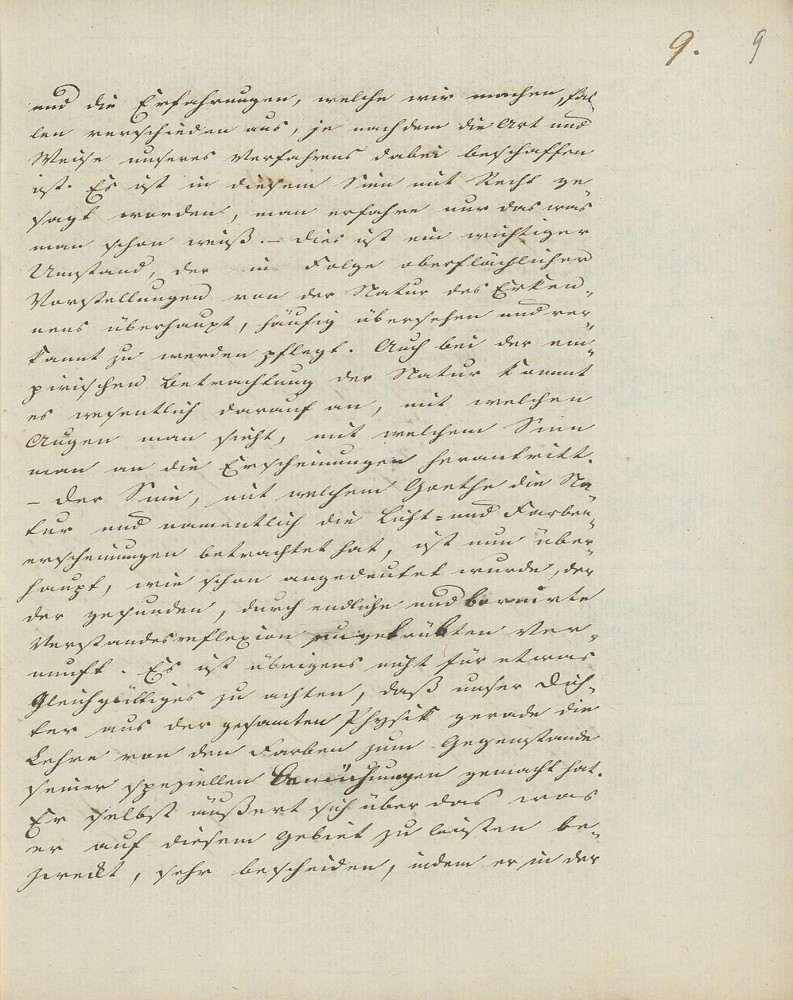 9. 9
und die Erfahrungen, welche wir machen, fal-
len verschieden aus, je nachdem die Art und
Weise unseres Verfahrens dabei beschaffen
ist. Es ist in diesem Sinn mit Recht ge-
sagt worden, man erfahre nur das was
man schon weiß. – Dies ist ein wichtiger
Umstand, der in Folge oberflächlicher
Vorstellungen von der Natur des Erken-
nens überhaupt, häufig übersehen und ver-
kannt zu werden pflegt. Auch bei der em-
pirischen Betrachtung der Natur kommt
es wesentlich darauf an, mit welchen
Augen man sieht, mit welchem Sinn
man an die Erscheinungen herantritt.
– Der Sinn, mit welchem Goethe die Na-
tur und namentlich die Licht- und Farben-
erscheinungen betrachtet hat, ist nun über-
haupt, wie schon angedeutet wurde, der
der gesunden, durch endliche und bornirte
Verstandesreflexion ungetrübten Ver-
nunft. Es ist übrigens nicht für etwas
Gleichgültiges zu achten, daß unser Dich-
ter aus der gesamten Physik gerade die
Lehre von den Farben zum Gegenstande
seiner speziellen Bemühungen gemacht hat.
Er selbst äußert sich über das was
er auf diesem Gebiet zu leisten be-
zweckt, sehr bescheiden, indem er in der